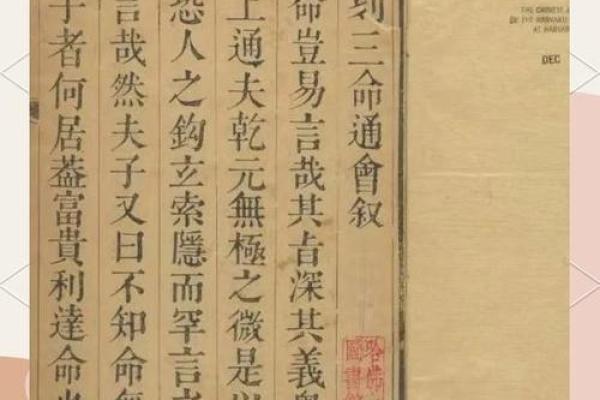 刻三命通會叙
命豈易言哉其㫖深其義
上通夫乾元無極之微是以
恐人之鈎玄索隱而罕言之
言哉然夫子又曰不知命無
子者何居葢富貴利達命也
哈佛
圖書館
THE CHINESE
OF THE HARVARD
AT HARVAR
DEC